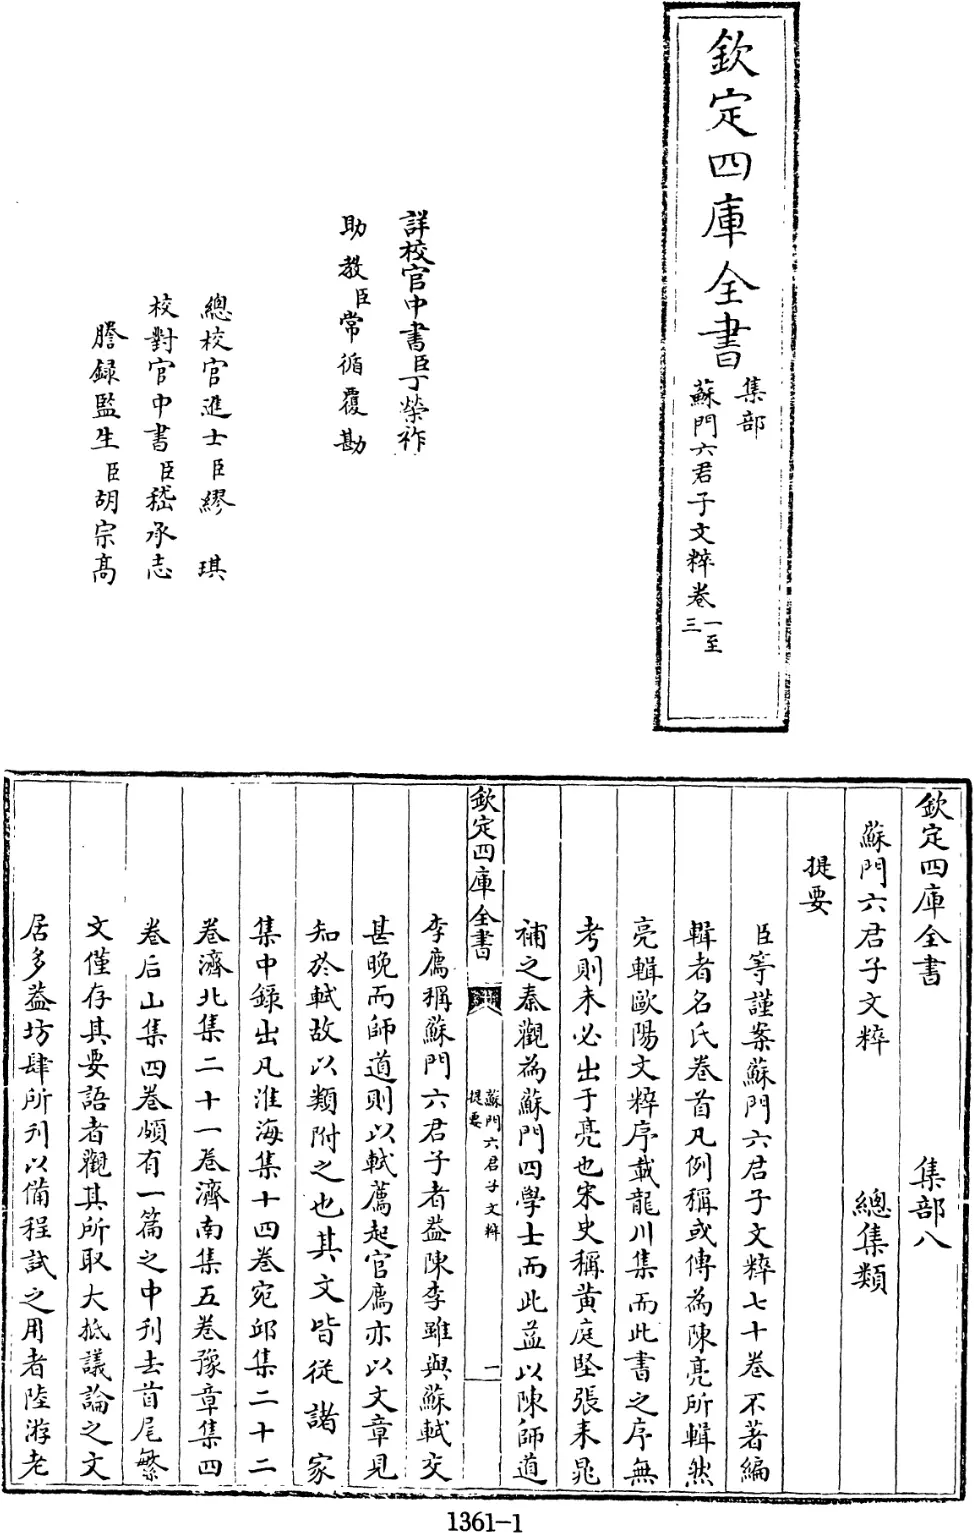 欽定四庫全書
集部
蘇門六君子文粹卷一至三
詳校官中書臣丁榮祚
助教臣常循覆勘
總校官進士臣繆琪
校對官中書臣嵇承志
謄録監生臣胡宗高
欽定四庫全書 集部八
蘇門六君子文粹 總集類
提要
臣等謹案蘇門六君子文粹七十卷不著編
輯者名氏卷首凡例稱或傳為陳亮所輯然
亮輯歐陽文粹序載龍川集而此書之序無
考則未必出于亮也宋史稱黄庭堅張耒晁
補之秦觀為蘇門四學士而此益以陳師道
欽定四庫全書
蘇門六君子文粹
提要
一
李廌稱蘇門六君子者葢陳李雖與蘇軾交
甚晚而師道則以軾薦起官廌亦以文章見
知於軾故以類附之也其文皆從諸家
集中録出凡淮海集十四卷宛邱集二十二
卷濟北集二十一卷濟南集五卷豫章集四
卷后山集四卷頗有一篇之中刋去首尾繁
文僅存其要語者觀其所取大抵議論之文
居多葢坊肆所刋以備程試之用者陸游老
1361-1